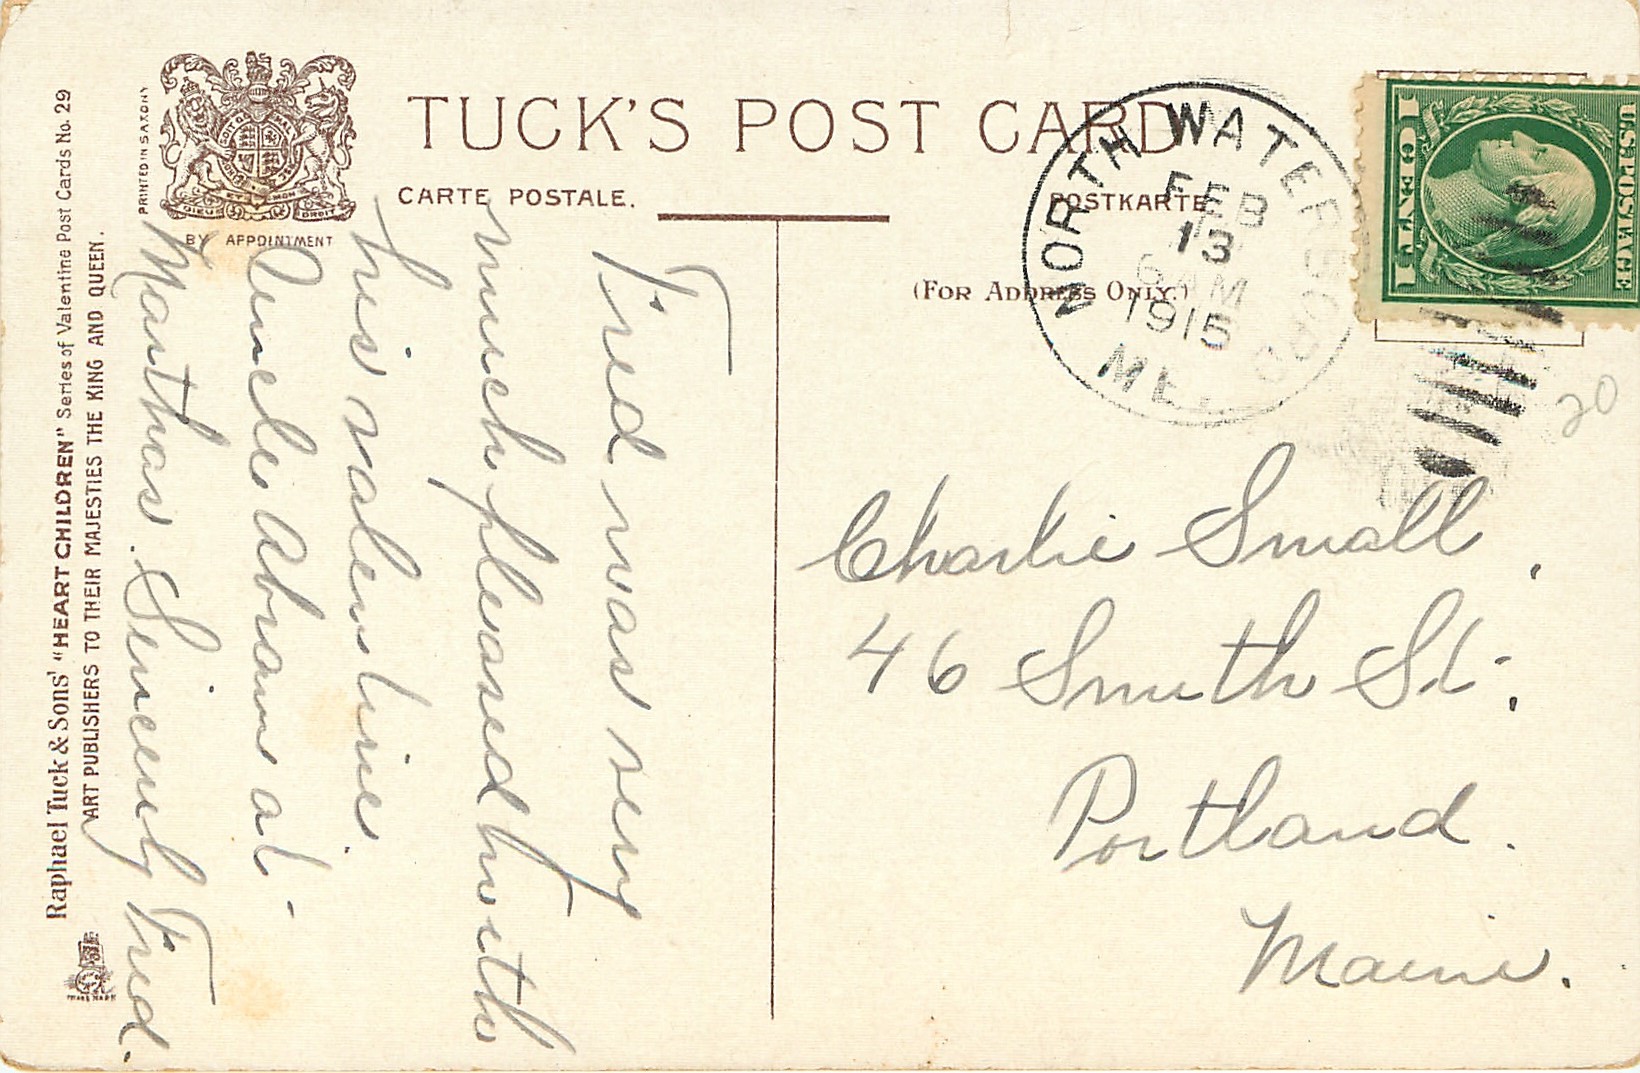 TUCK'S POST CARD
CARTE POSTALE.
POSTKARTE
(FOR ADDRESS ONLY.)
BY APPOINTMENT
DIEU ET MON DROIT
PRINTED IN SAXONY
Raphael Tuck & Sons' "HEART CHILDREN" Series of Valentine Post Cards No. 29
ART PUBLISHERS TO THEIR MAJESTIES THE KING AND QUEEN.
TRADE MARK
NORTH WATERFORD
FEB
13
6 AM
1915
ME.
U.S. POSTAGE
1 CENT 1
20
Fred was very
much pleased with
his valentine.
Uncle Abrams at
Marthas. Sincerely Fred.
Charlie Small,
46 Smith St.,
Portland.
Maine.